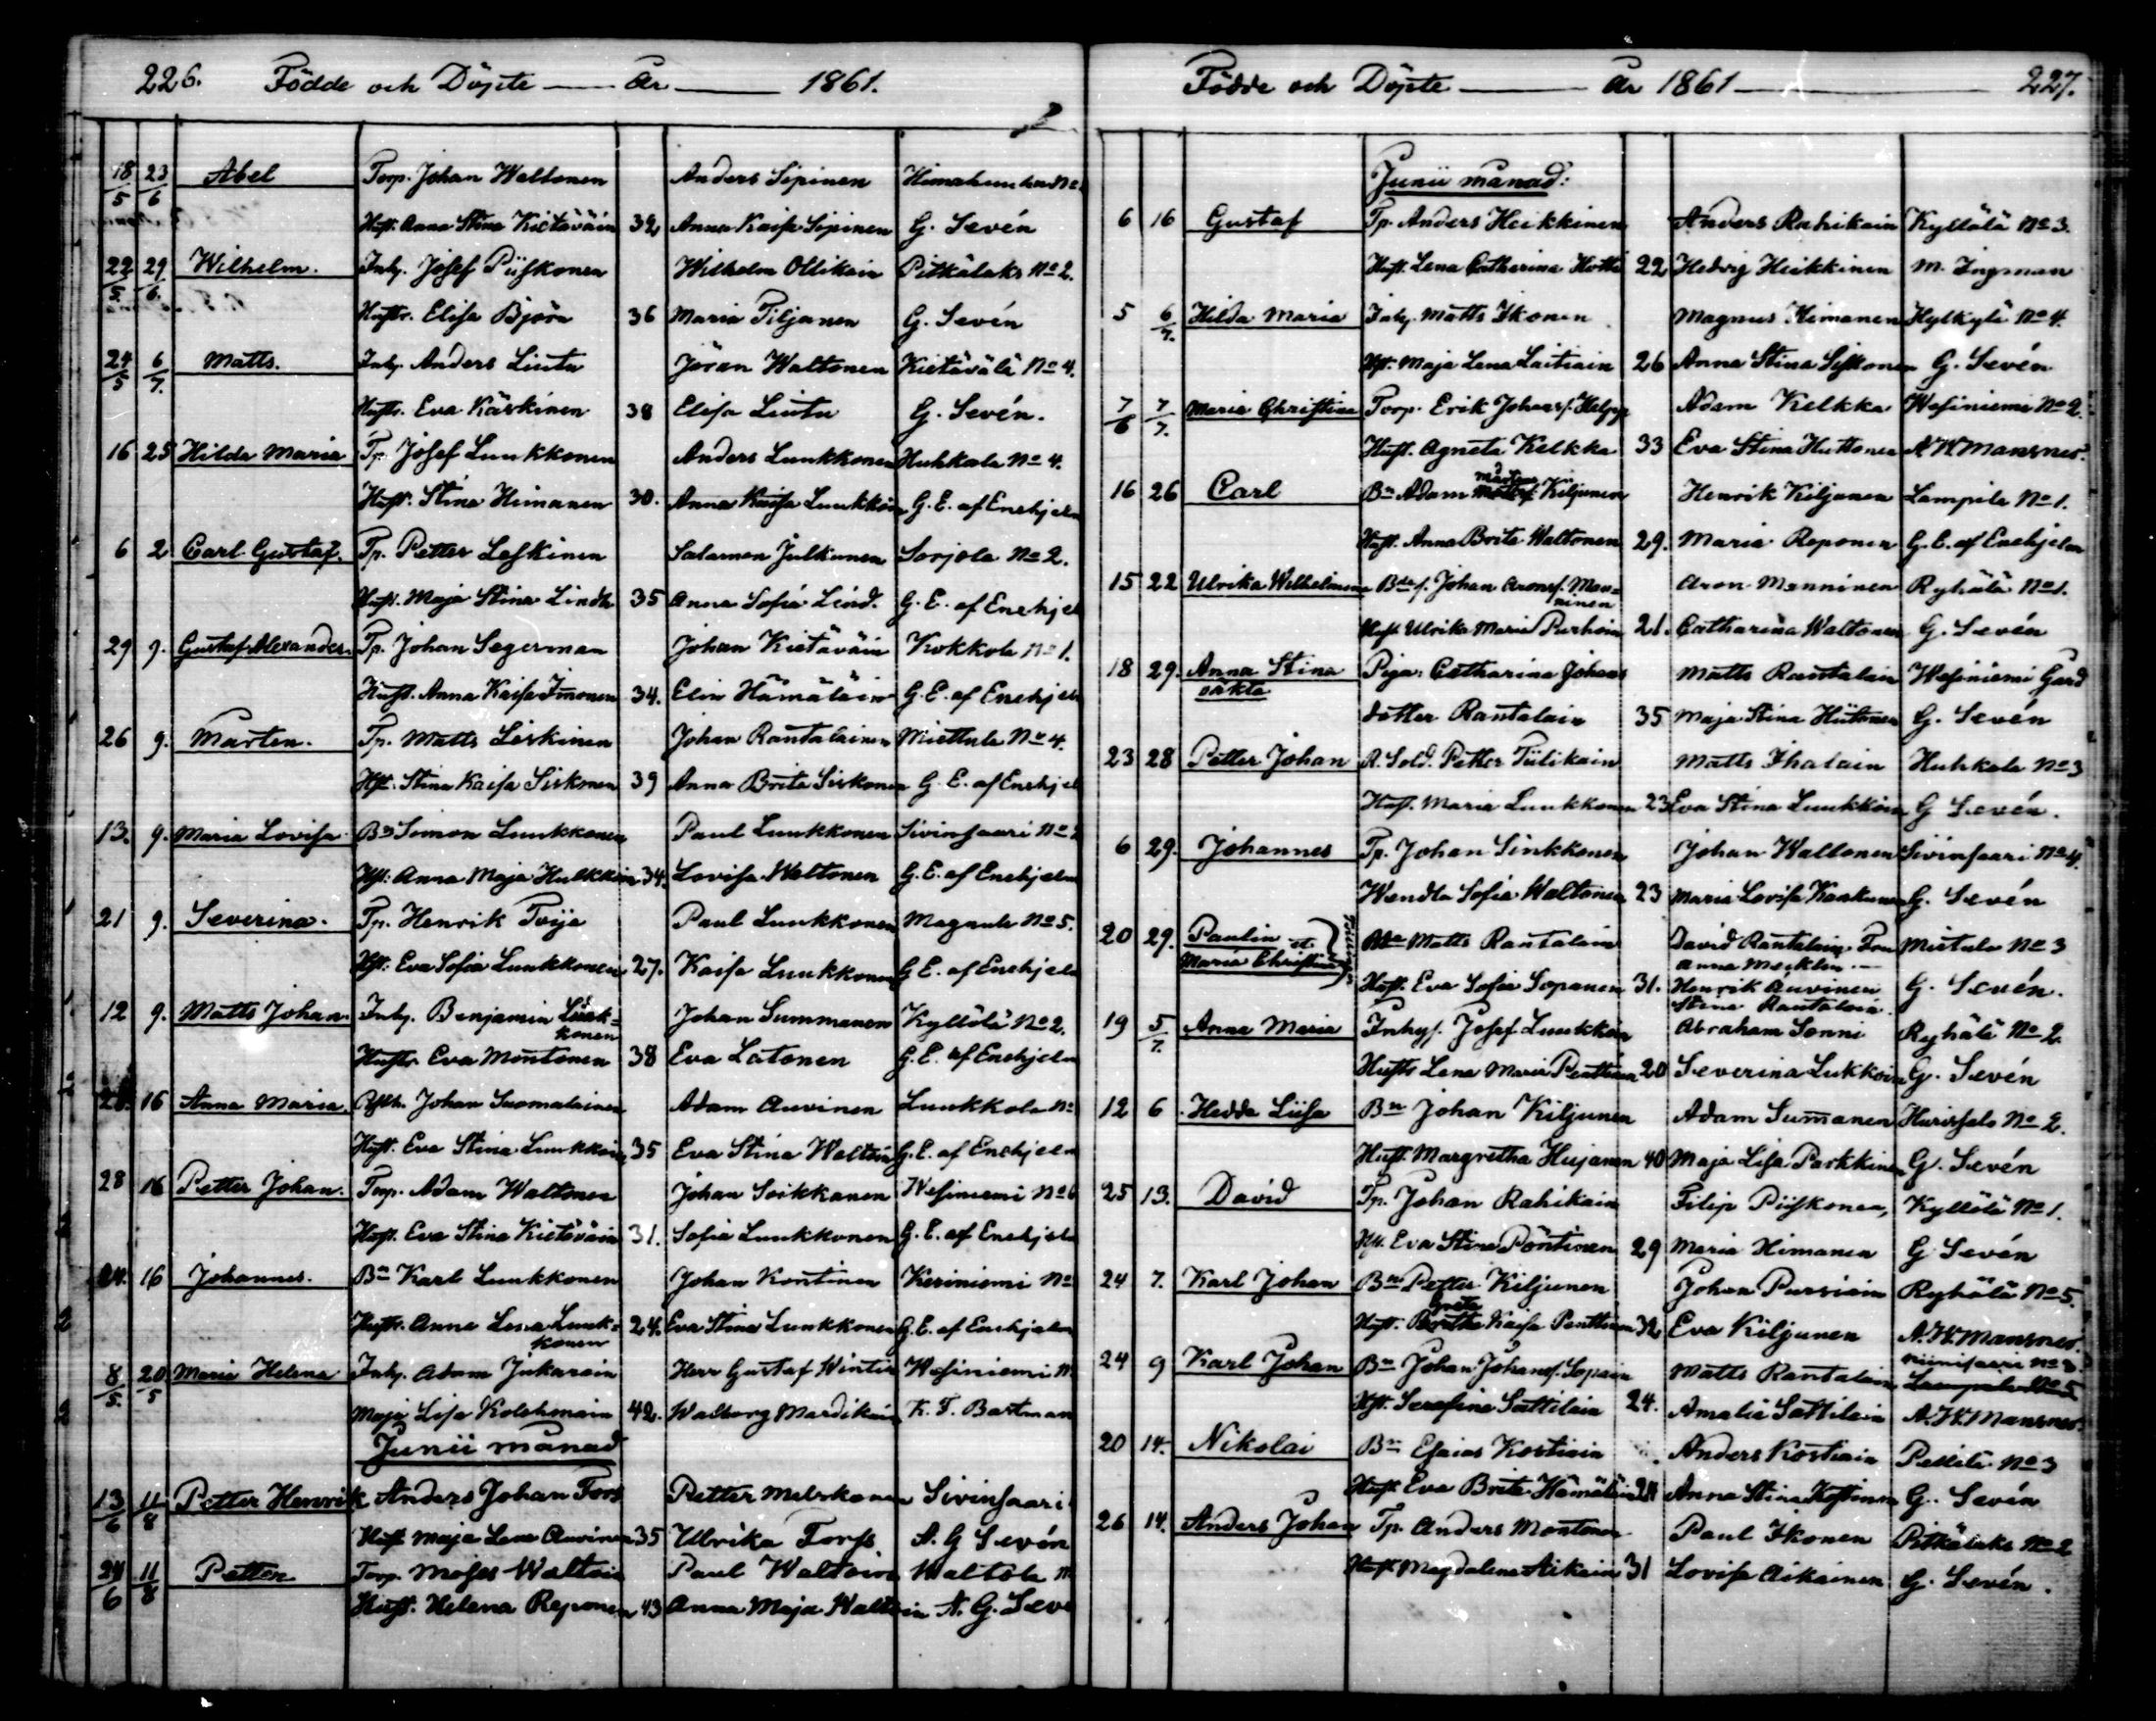 226. Födde och Döpte — År — 1861.
18/5 23/6 Abel Torp. Johan Waltonen Anders Sipinen
Hust. Anna Stina Kietäväin 32 Anna Kaisa Sipinen G. Sevén
22/5. 29/6. Wilhelm. Inh. Josef Piiskonen Wilhelm Ollikain Pitkälaks No 2.
Hustr. Elisa Björn 36 Maria Tiljanen G. Sevén
24/5 6/7. Matts. Inh. Anders Liuta Jöran Waltonen Kietävälä No 4.
Hustr. Eva Käskinen 38 Elisa Liuta G. Sevén.
16 25 Hilda Maria Tp. Josef Luukkonen Anders Luukkonen Huhkala No 4.
Hust. Stina Heimanen 30. Anna Kaisa Luukkoin G. E. af Enehjelm
6 2 Carl Gustaf. Tp. Petter Leskinen Salamon Julkunen Sorjola No 2.
Hust. Maja Stina Lindh 35 Anna Sofia Lind. G. E. af Enehjel
29 9. Gustaf Alexander. Tp. Johan Segerman Johan Kietäväin Kokkola No 1.
Hust. Anna Kaisa Imonen 34. Elin Hämäläin G. E. af Enehjelm
26 9. Marten. Tp. Matts Leskinen Johan Rantalainen Miettula No 4.
Hst. Stina Kaisa Siskonen 39 Anna Brita Siskonen G. E. af Enehjel
13. 9. Maria Lovisa Bn Simon Luukkonen Paul Luukkonen Sivinsaari No 2
Hst: Anna Maja Hulkkoin 34. Lovisa Waltonen G. E. af Enehjelm
21 9. Severina. Tp. Henrik Toije Paul Luukkonen Magaula No 5.
Hst: Eva Sofia Luukkonen 27. Kaisa Luukkonen G. E. af Enehjelm
12 9. Matts Johan. Inh. Benjamin Luuk-
konen Johan Summanen Kyllölä No 2.
Hustr. Eva Montonen 38 Eva Latonen G. E. af Enehjelm
16 Anna Maria. Johan Suomalainen Adam Auvinen Luukkola No
Hust. Eva Stina Luukkoin 35 Eva Stina Waltoin G. E. af Enehjelm
28 16 Petter Johan. Torp. Adam Waltonen Johan Soikkanen Wesiniemi No 6
Hust. Eva Stina Kietäväin 31. Sofia Luukkonen G. E. af Enehjelm
24. 16 Johannes. Bn Karl Luukkonen Johan Kontinen Keriniemi No
Hustr. Anna Lena Luuk-
konen 24. Eva Stina Luukkonen G. E. af Enehjelm
8/5. 20/5 Maria Helena Inh. Adam Jukarain Herr Gustaf Winter Wesiniemi N
Maja Lisa Kolehmain 42. Walborg Mardikain K. F. Bartman
Junii månad
13/6 11/8 Petter Henrik Anders Johan Fors Petter Melskonen Sivinsaari
Hust. Maja Lena Auvinen 35 Ulrika Forss A. G Sevén
24/6 11/8 Petter Torp. Moses Waltoin Paul Waltoin Waltola N
Hust. Helena Reponen 43 Anna Maja Waltoin A. G. Seve
Födde och Döpte — År 1861 — 227.
Junii månad:
6 16 Gustaf Tp. Anders Heikkinen Anders Rahikain Kyllölä No 3.
Hust. Lena Catherina Hotti 22 Hedvig Heikkinen M. Ingman
5 6/7. Hilda Maria Inh. Matts Ikonen Magnus Himanen Hylkylä No 4.
Hst. Maja Lena Laitiain 26 Anna Stina Siskonen G. Sevén
7/6 7/7. Maria Christina Torp. Erik Johanss. Adam Kelkka Wesiniemi No 2.
Hust. Agneta Kelkka 33 Eva Stina Huttonen A. W. Mansner.
16 26 Carl Bn Adam Kiljunen Henrik Kiljunen Lampila No 1.
Hust. Anna Brita Waltonen 29. Maria Reponen G. E. af Enehjelm
15 22 Ulrika Wilhelmina Bdes. Johan Aronss. Man-
ninen Aron Manninen Ryhälä No 1.
Hust Ulrika Maria Purhoin 21. Catharina Waltonen G. Sevén
18 29. Anna Stina
oäkta Piga: Catharina Johans Matts Rantalain Wesiniemi Gård
dotter Rantalain 35 Maja Stina Hiitonen G. Sevén
23 28 Petter Johan R. Sold. Petter Tiilikain Matts Ihalain Huhkala No 3
Hust. Maria Luukkonen 23 Eva Stina Luukkoin G Sevén.
6 29. Johannes Tp. Johan Sinkkonen Johan Waltonen Sivinsaari No 4.
Wendla Sofia Waltonen 23 Maria Lovisa Kankunen G. Sevén
20 29. Paulin et
Maria Christina Matts Rantalain David Rantalain. Fru
Anna Mecklin — Mietula No 3
Hust. Eva Sofia Sopanen 31. Henrik Auvinen
Stina Rantalain. G. Sevén.
19 5/7. Anna Maria Inhys. Josef Luukkoin Abraham Sonni Ryhälä No 2.
Hustr Lena Maria Penttinen 20 Severina Lukkoin G. Sevén
12 6. Hedda Liisa Bn Johan Kiljunen Adam Sumanen Hurissalo No 2.
Hust. Margretha Hujanen 40 Maja Lisa Parkkinen G. Sevén
25 13. David Tp. Johan Rahikain Filip Piiskonen, Kyllölä No 1.
Hst. Eva Stina Pöntinen 29 Maria Himanen G Sevén
24 7. Karl Johan Bn Petter Kiljunen Johan Pursiain Ryhälä No 5.
Hust. Greta Kaisa Penttinen 32 Eva Kiljunen A. W. Mansner.
24 9 Karl Johan Bn Johan Johanss. Sopain Matts Rantalain Niinisaari No 3
Lampila No 5
Hst. Serafina Sattilain 24. Amalia Sattilain A. W. Mansner.
20 14. Nikolai Bn Esaias Kostiain Anders Kostiain Pellilä No 3
Hust Eva Brita Hämäläin 24 Anna Stina Kostinen G. Sevén
26 14. Anders Johan Tp. Anders Montonen Paul Ikonen Pitkälaks No 2
Hust Magdalena Aikain 31 Lovisa Aikainen G. Sevén.